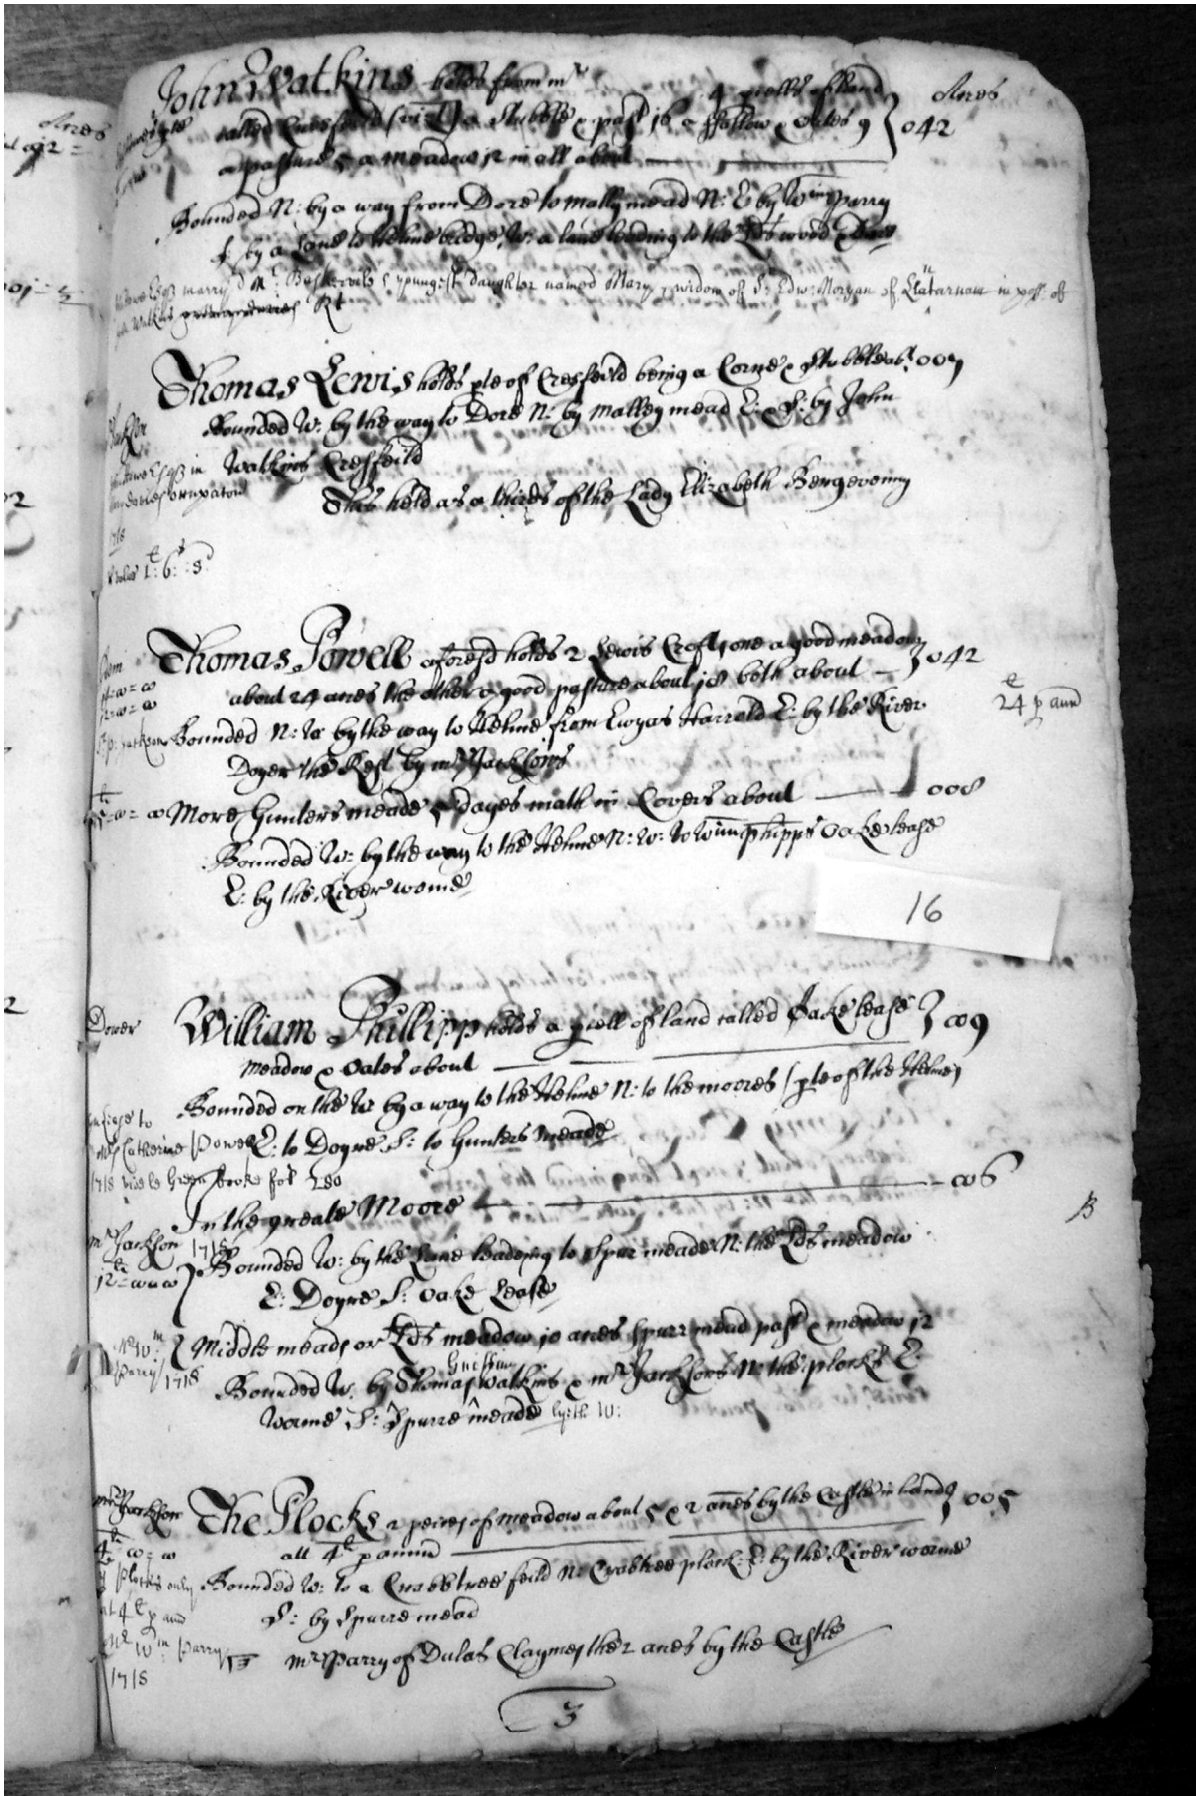 John Watkins holds from mr 4 pcells of land Acres
called Cresfeild (vizt) a stubble & past 16 a ffallow & oates 9 } 042
a pasture 5 a meadow 12 in all about
Bounded N: by a way from Dore to Mally mead N: E by Wm Parry
S: by a Lane to Helme bridge, W: a lane leading to the Lds wood
marry'd Mr Baskervile's youngest daughter named Mary, widow of Sr Edw: Morgan of Llatarnam in poss. of
Watkins
Thomas Lewis holds pte of Cresfeild being a Corne & Stubble abt 007
Bounded W: by the way to Dore N: by Malley mead E: & S: by John
Watkins Cresfeild
This held as a thirds of the Lady Elizabeth Bergevenny
1718
value 1: 6: 8
Thomas Powell aforesd holds 2 Lewis Crofts one a good meadow
about 24 acres the other a good pasture about 18 both about } 042
24 p ann
Bounded N: W by the way to Helme from Ewyas Harrold E: by the River
Doyer the Rest by mr Jacksons
More Gunters meade 5 dayes math in Covers about 008
Bounded W: by the way to the Helme N: W: to Wm Phipps Oake lease
E: by the River worme
16
Dower
William Phillipp holds a pcell of land called Oake lease } 009
meadow & Oates about
Bounded on the W by a way to the Helme N: to the moores (pte of the Helme)
E: to Doyre S: to Gunters meade
to Mrs Catherine Powell
1718 vide Green booke fol 280
In the greate Moore 006
B
mr Jackson 1718
12=00=00
Bounded W: by the Lane leading to Spur meade N: the Lds meadow
E: Doyre S: Oake Lease
Mr Wm Parry 1718
Middle meade or Lds meadow 10 acres Spurr mead past & meadow 12
Bounded W. by Thomas Watkins & mr Jacksons N: the plocks E:
Worme S: Spurre meade
mr Jackson
The Plocks 2 peices of meadow about 5 & 2 acres by the Castle in hand } 005
att 4 p annu
4=00=00
Plocks only
at 4 p ann
Mr Wm Parry
1718
Bounded W: to a Crabbtree feild N: Crabtree plock: E: by the River worme
S: by Spurre mead
mr Parry of Dulas Claymes the 2 acres by the Castle
3